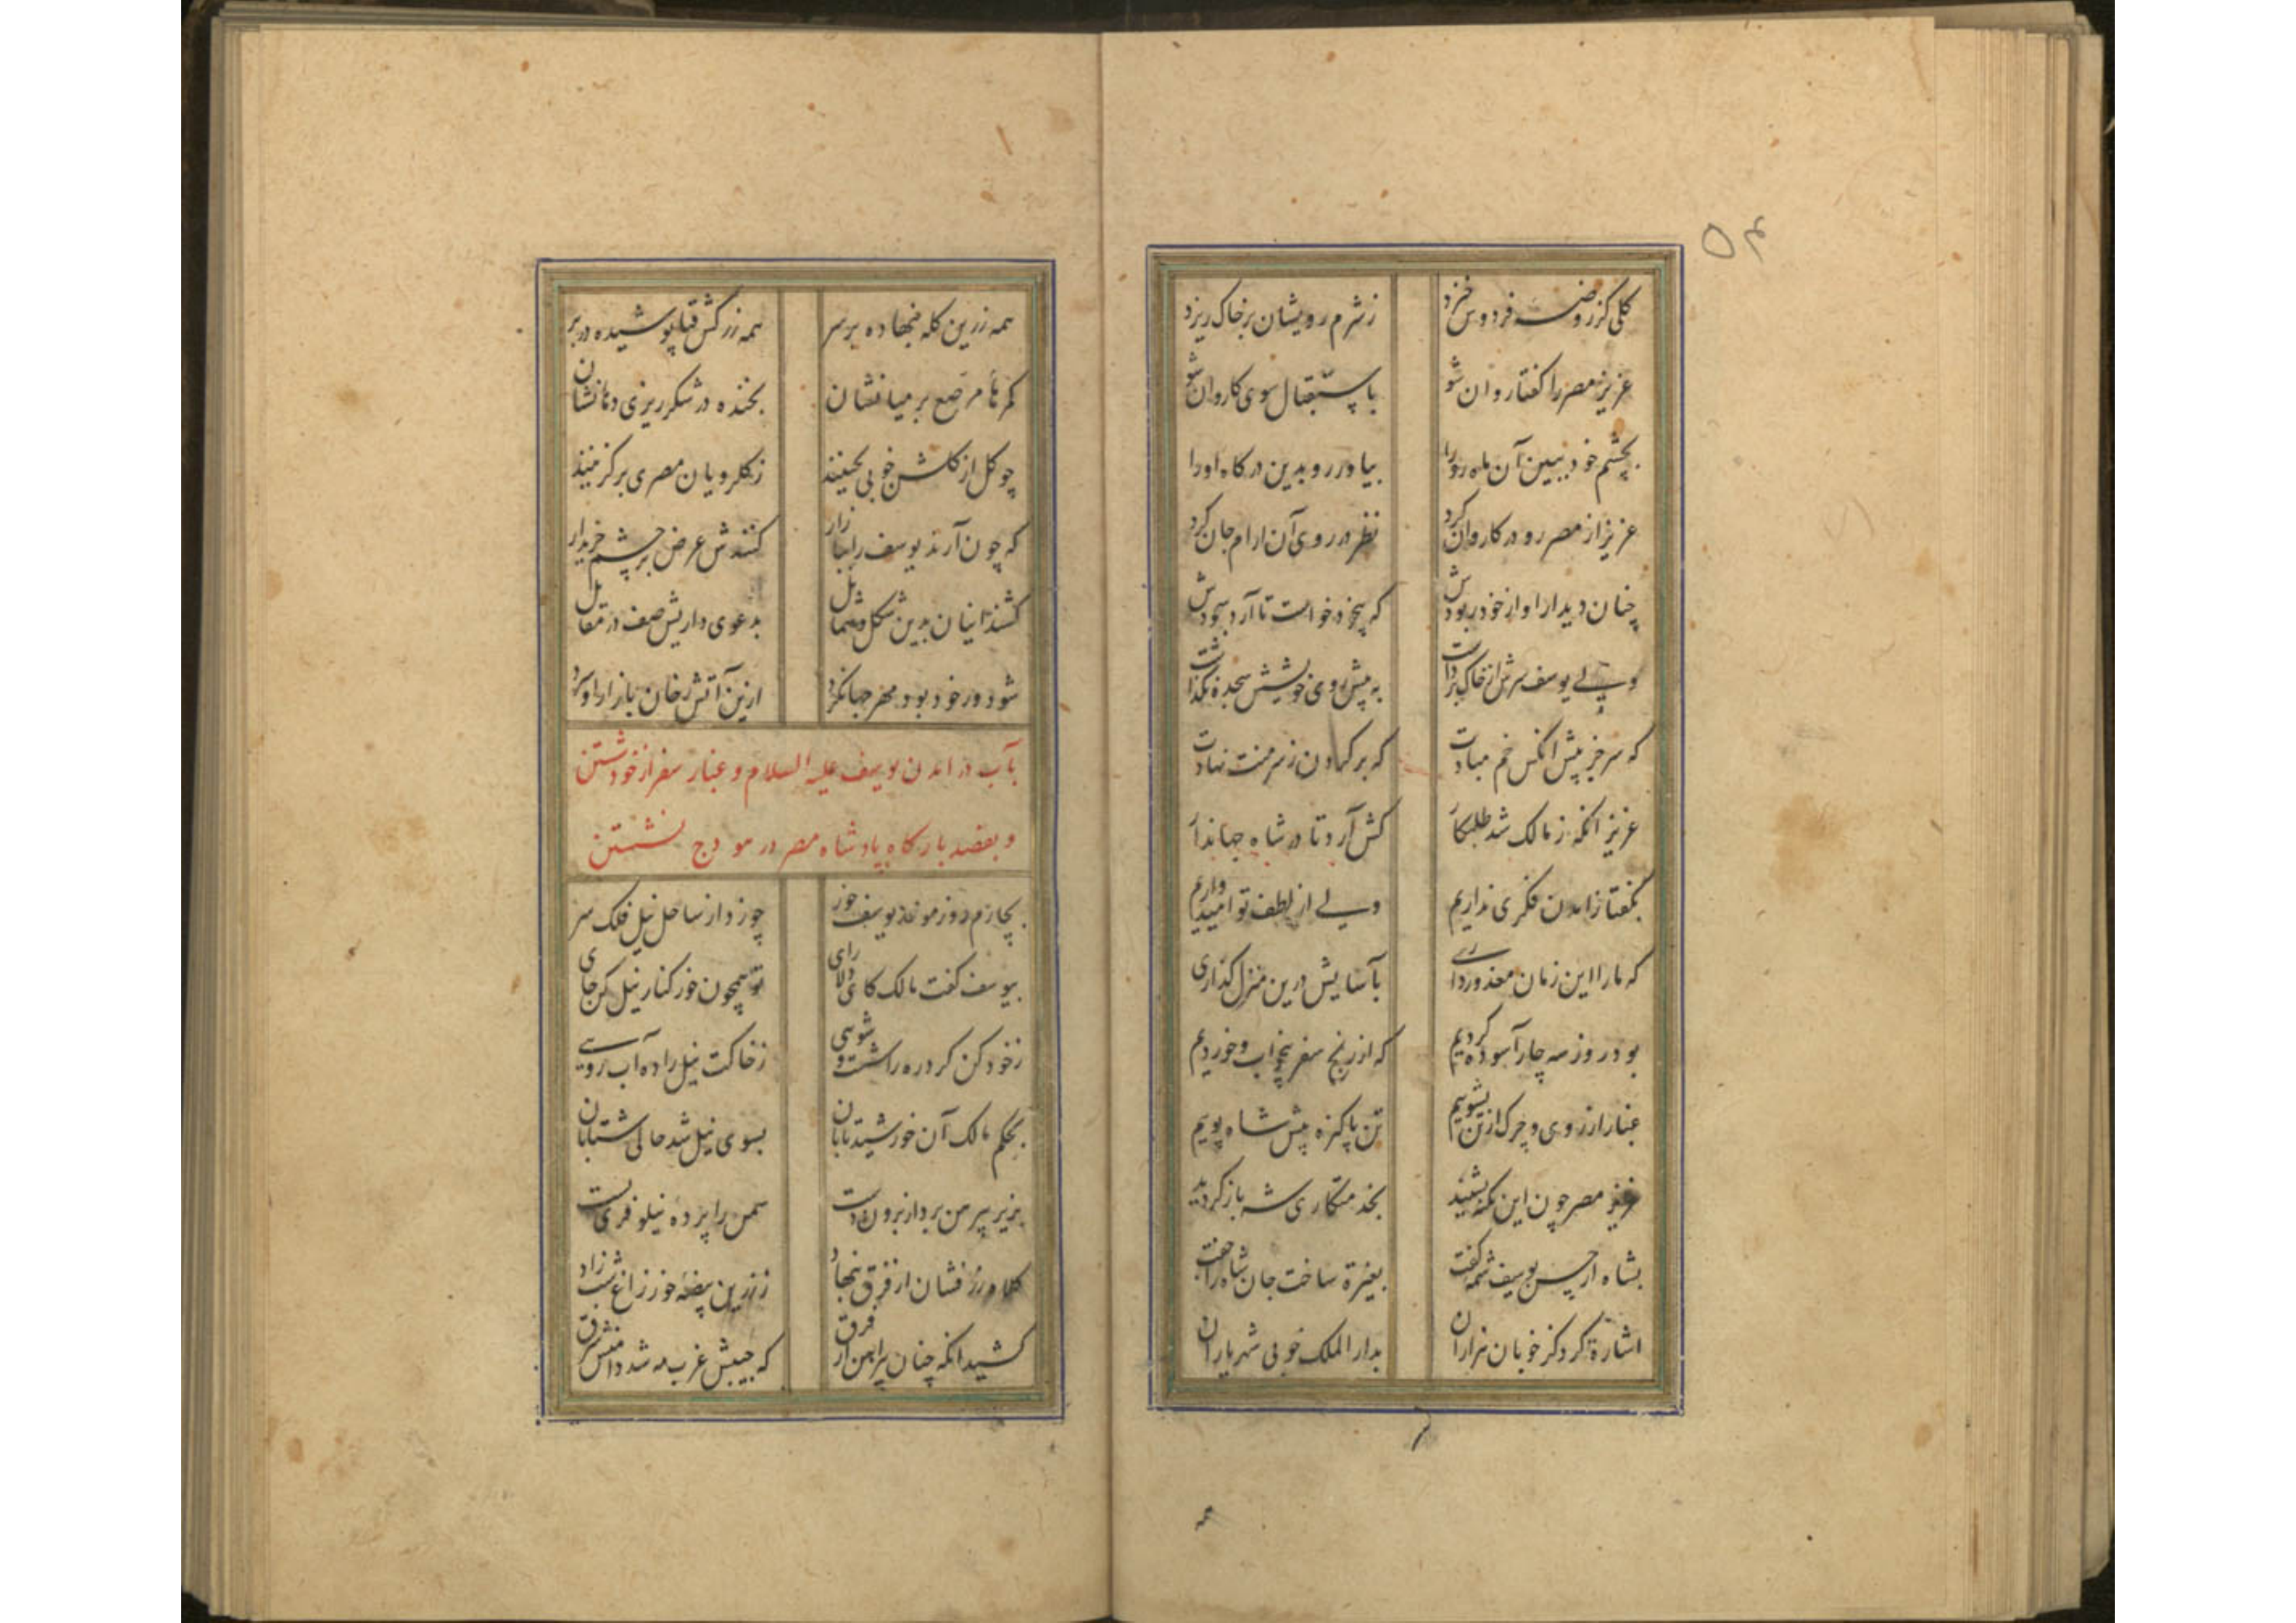 ۵۴
گلی کز روضه فردوس خیزد ز شرم رویشان بر خاک ریزد
عزیز مصر را گفتا روان شو باستقبال سوی کاروان شو
بچشم خود ببین آن ماه رو را بیاور رو بدین درگاه او را
عزیز از مصر رو در کاروان کرد نظر در روی آن ارام جان کرد
چنان دیدار او از خود ربودش که بیخود خواست تا آرد سجودش
ولی یوسف سرش از خاک برداشت به پیش روی خویشش سجده نگذاشت
که سر جز پیش آنکس خم مبادت که بر گردن ز سر منت نهادت
عزیز آنگه ز مالک شد طلبکار کش آرد تا در شاه جهاندار
بگفتا ز آمدن فکری نداریم ولی از لطف تو امیدواریم
که ما را این زمان معذور داری بآسایش درین منزل گذاری
بود روز سه چار آسوده گردیم که از رنج سفر بیخواب و خوردیم
غبار از روی و چرک از تن بشوییم تن پاکیزه پیش شاه پوییم
عزیز مصر چون این نکته بشنید بخدمتکاری شه باز گردید
بشاه از حسن یوسف شمه گفت بغیرة ساخت جان شاه را جفت
اشارة کرد کز خوبان هزاران بدار الملک خوبی شهریاران
همه زرین کله بنهاده بر سر همه زرکش قبا پوشیده در بر
کمرهٔا مرصع بر میانشان بخنده در شکرریزی دهانشان
چو گل از گلشن خوبی بچینند ز گلرویان مصری برگزینند
که چون آرند یوسف را ببازار کنندش عرض بر چشم خریدار
کشند اینان بدین شکل و شمایل بدعوی داریش صف در مقابل
شود ور خود بود مهر جهانگرد ازین آتش رخان بازار او سرد
بآب در امدن یوسف علیه السلام و غبار سفر از خود شستن
و بقصد بارگاه پادشاه مصر در هودج نشستن
بچارم روز موعد یوسف خور چو زد از ساحل نیل فلک سر
بیوسف گفت مالک کای دلارای تو همچون خور کنار نیل کن جای
ز خود کن گرد ره را شست و شویی ز خاکت نیل را ده آب رویی
بحکم مالک آن خورشید تابان بسوی نیل شد حالی شتابان
بزیر پیرهن برد از برون دست سمن را پرده نیلوفری بست
کلاه زرفشان از فرق بنهاد ز زرین بیضهٔ خور زاغ شب زاد
کشید آنگه چنان پیراهن از فرق که جیبش غرب مه شد دامنش شرق